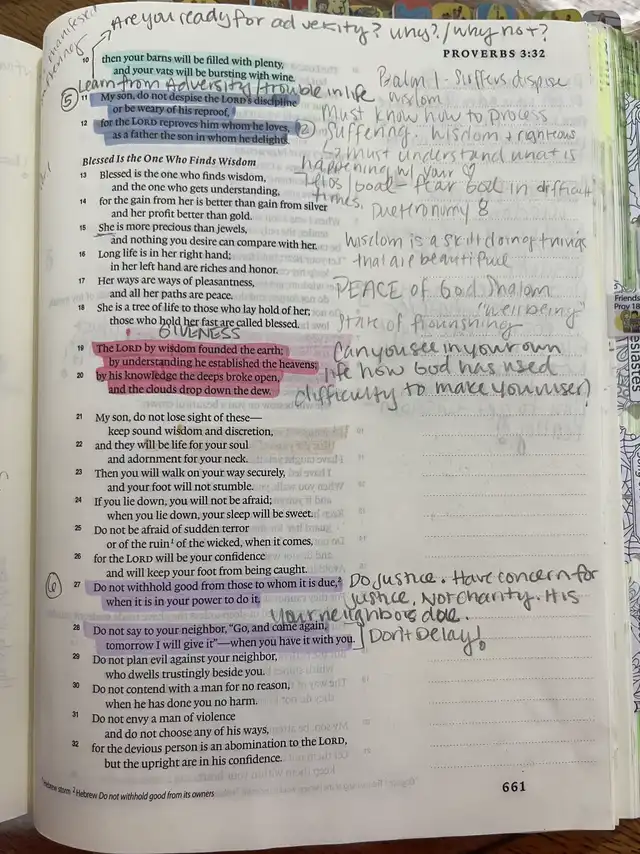 Are you ready for adversity? Why?/Why not?
PROVERBS 3:32
10 then your barns will be filled with plenty,
and your vats will be bursting with wine.
Learn from Adversity/trouble in life
5
11 My son, do not despise the LORD's discipline
or be weary of his reproof,
12 for the LORD reproves him whom he loves,
as a father the son in whom he delights.
Psalm 1 - Suffers despise
wisdom
Must know how to process
2 Suffering. Wisdom + righteous
→ must understand what is
happening w/ your ♡
/ Good - fear God in difficult
times.
Duetronomy 8
Blessed Is the One Who Finds Wisdom
13 Blessed is the one who finds wisdom,
and the one who gets understanding,
14 for the gain from her is better than gain from silver
and her profit better than gold.
15 She is more precious than jewels,
and nothing you desire can compare with her.
16 Long life is in her right hand;
in her left hand are riches and honor.
17 Her ways are ways of pleasantness,
and all her paths are peace.
18 She is a tree of life to those who lay hold of her;
those who hold her fast are called blessed.
Wisdom is a skill doing things
that are beautiful
PEACE of God Shalom
"well being"
State of flourishing
19 The LORD by wisdom founded the earth;
by understanding he established the heavens;
20 by his knowledge the deeps broke open,
and the clouds drop down the dew.
Can you see in your own
life how God has used
difficulty to make you wiser)
21 My son, do not lose sight of these—
keep sound wisdom and discretion,
22 and they will be life for your soul
and adornment for your neck.
23 Then you will walk on your way securely,
and your foot will not stumble.
24 If you lie down, you will not be afraid;
when you lie down, your sleep will be sweet.
25 Do not be afraid of sudden terror
or of the ruin¹ of the wicked, when it comes,
26 for the LORD will be your confidence
and will keep your foot from being caught.
6
27 Do not withhold good from those to whom it is due,²
when it is in your power to do it.
Do justice. Have concern for
justice, Not charity. His
your neighbors due.
28 Do not say to your neighbor, "Go, and come again,
tomorrow I will give it"—when you have it with you.
Don't Delay!
29 Do not plan evil against your neighbor,
who dwells trustingly beside you.
30 Do not contend with a man for no reason,
when he has done you no harm.
31 Do not envy a man of violence
and do not choose any of his ways,
32 for the devious person is an abomination to the LORD,
but the upright are in his confidence.
¹ Hebrew storm ² Hebrew Do not withhold good from its owners
661
Friends
Prov 18